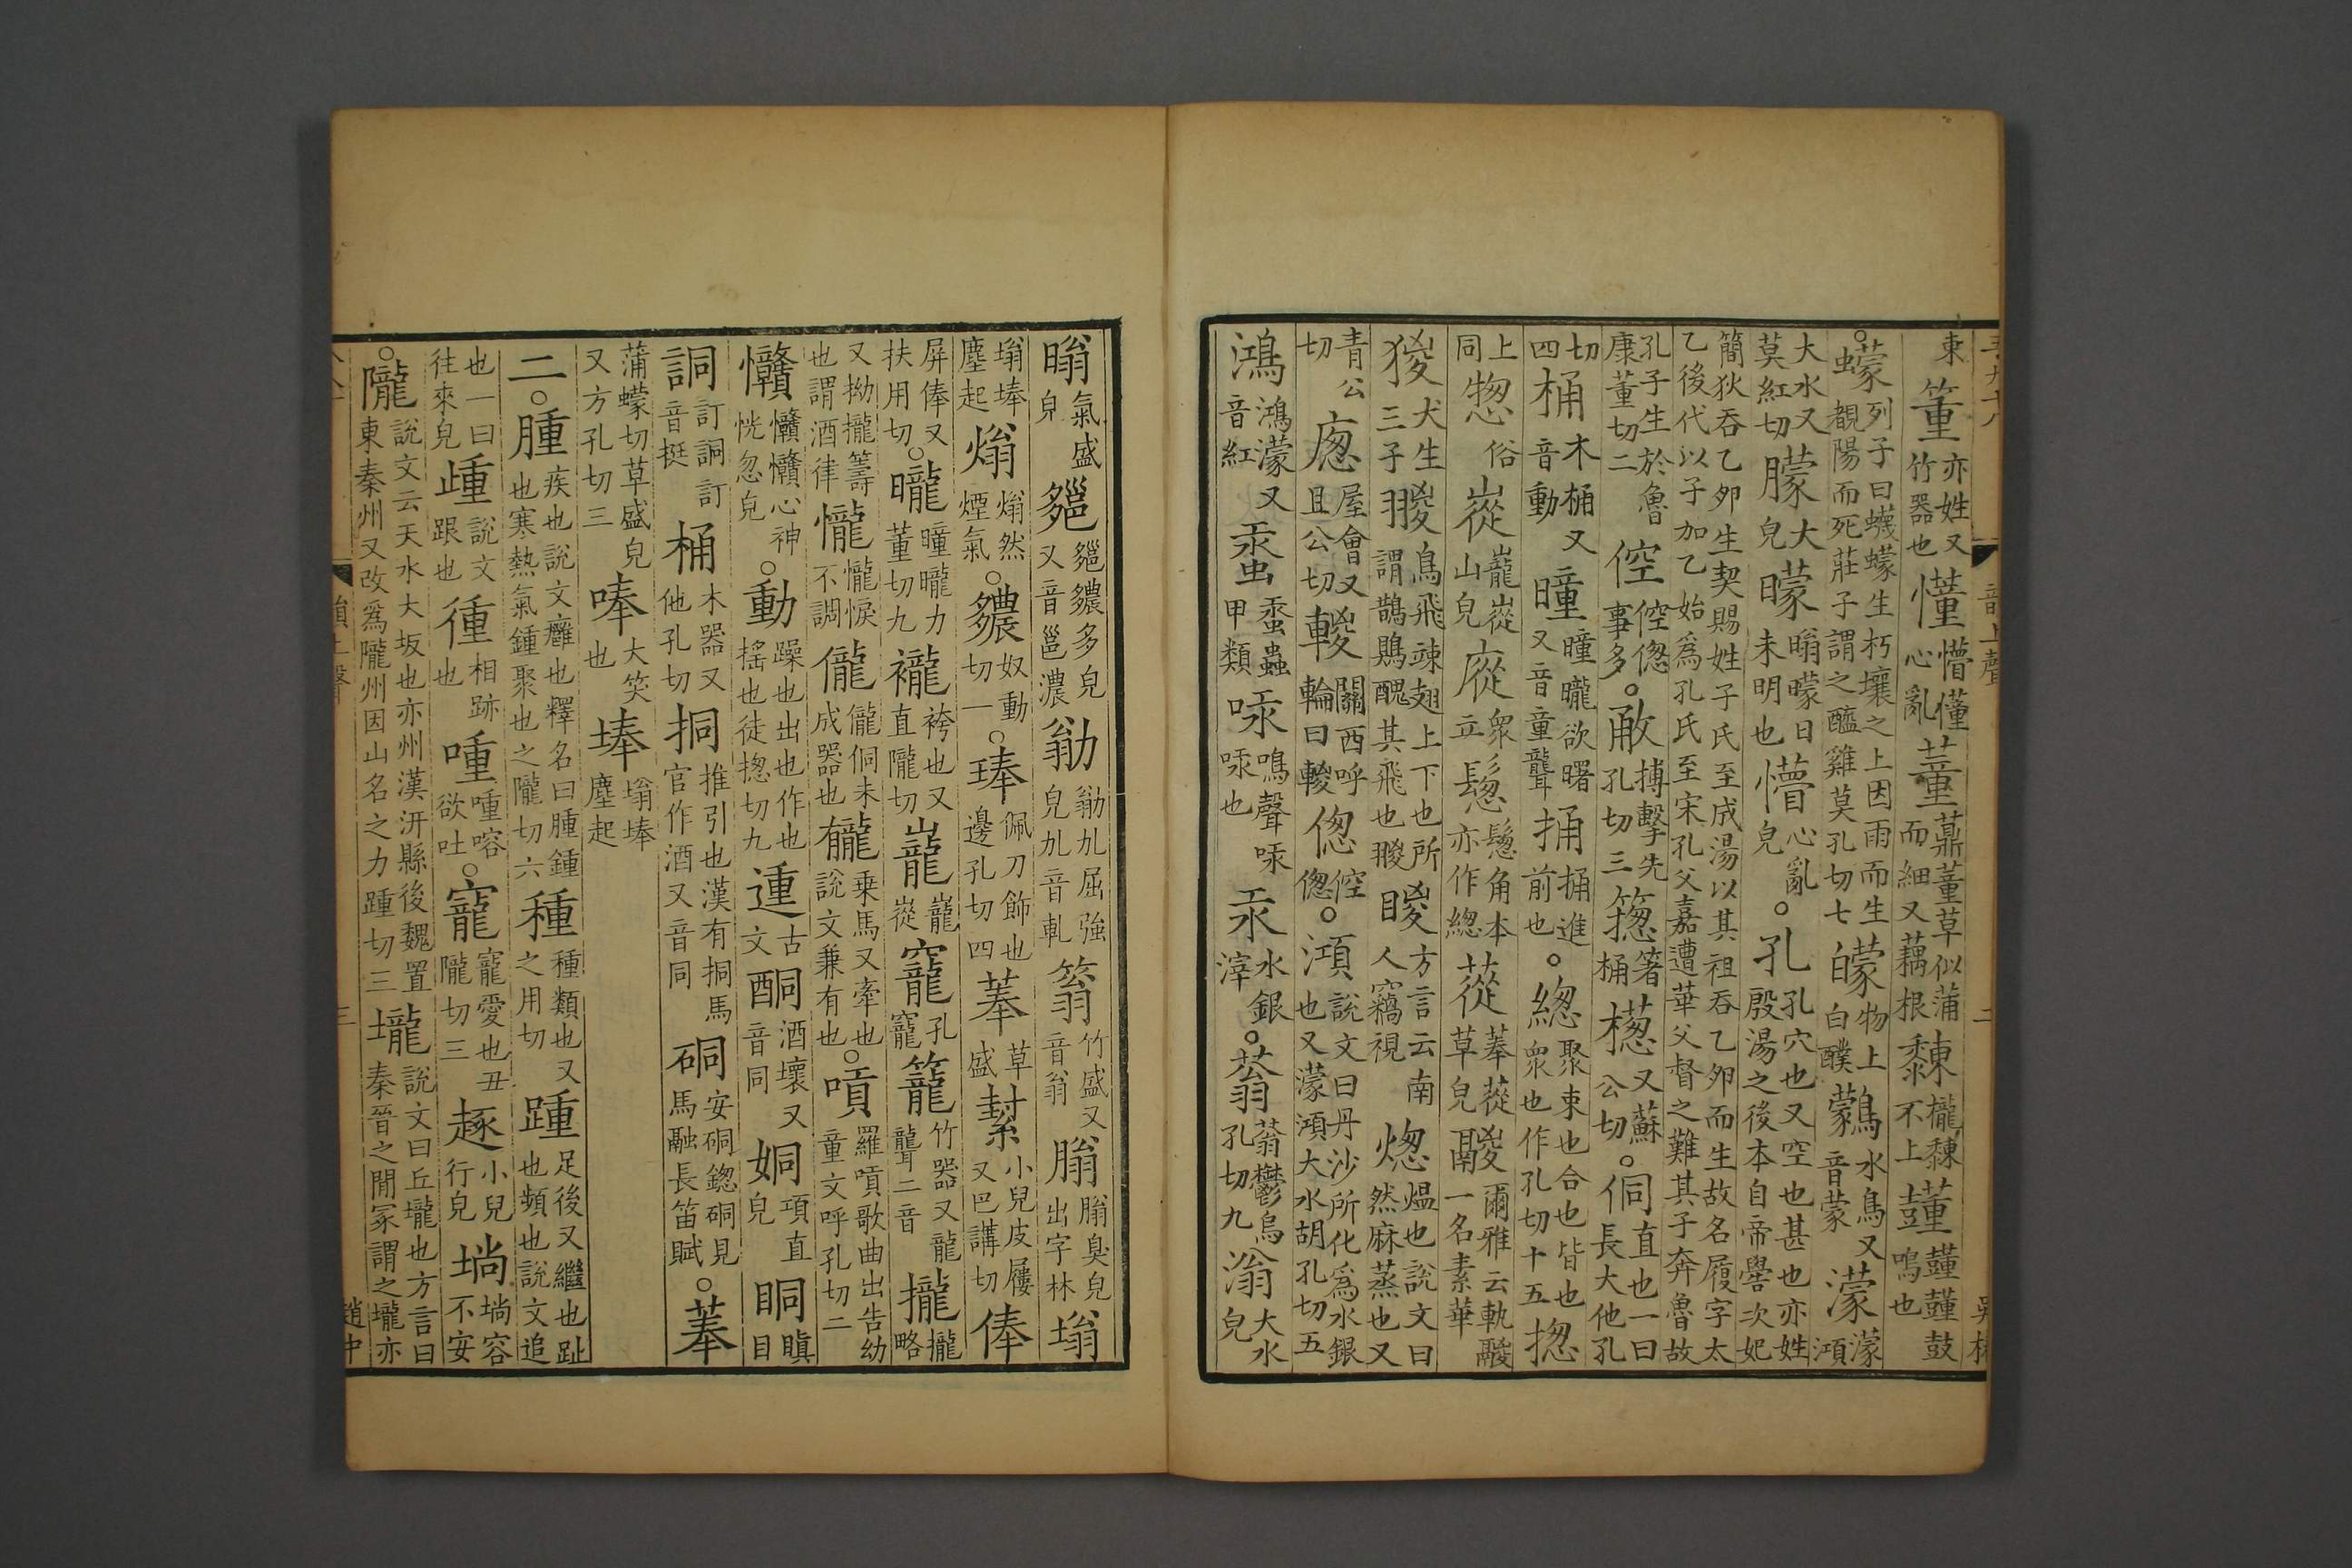 東董亦姓又竹器也懂懵懂心亂蕫薡蕫草似蒲而細又藕根𪏻櫳𪏻不上𪔯𪔯𪔯鼓鳴也
○蠓列子曰蠛蠓生朽壤之上因雨而生覩陽而死莊子謂之醯雞莫孔切七䑃物上白醭鸏水鳥又音蒙濛濛澒
大水又莫紅切朦大皃曚暡曚日未明也懵心亂皃○孔孔穴也又空也甚也亦姓殷湯之後本自帝嚳次妃
簡狄吞乙卵生契賜姓子氏至成湯以其祖吞乙卵而生故名履字太乙後代以子加乙始爲孔氏至宋孔父嘉遭華父督之難其子奔魯故
孔子生於魯康董切二倥倥偬事多○㪌搏擊先孔切三箜箸桶㯶又蘇公切○侗直也一曰長大他孔
切四桶木桶又音動曈曈曨欲曙又音童聾捅捅進前也○緫聚束也合也皆也眾也作孔切十五揔
上同惣俗嵷巃嵷山皃㢔眾立鬷鬷角本亦作總蓯菶蓯草皃𩰸爾雅云軌鬷一名素華
猣犬生三子翪鳥飛竦翅上下也所謂鵲鵙醜其飛也翪䁓方言云南人竊視熜熅也說文曰然麻蒸也又
青公切㢔屋會又且公切㚇關西呼輪曰㚇偬倥偬○澒說文曰丹沙所化爲水銀也又濛澒大水胡孔切五
鴻鴻濛又音紅䖝䖝蟲甲類㖼鳴聲㖼㖼也汞水銀滓○蓊蓊鬱烏孔切九滃大水皃
暡氣盛皃㜳㜳繷多皃又音邕濃勜勜劜屈強皃劜音軋䈵竹盛又音翁䐥䐥臭皃出字林塕
塕埲塵起㷙㷙然煙氣○繷奴動切一○琫佩刀飾也邊孔切四菶草盛䋽小兒皮屨又巴講切俸
屏俸又扶用切○曨曈曨力董切九襱袴也又直隴切巃巃嵷竉孔竉籠竹器又龍聾二音攏攏略
又拗攏籌也謂酒律㦕㦕悷不調儱儱侗未成器也䪊乗馬又牽也說文兼有也○嗊羅嗊歌曲出告幼童文呼孔切二
戇戇戇心神恍忽皃○動躁也出也作也搖也徒揔切九運古文酮酒壞又音同姛項直皃眮瞋目
詷訂詷訂音挺桶木器又他孔切挏推引也漢有挏馬官作酒又音同硐安硐鍯硐見馬融長笛賦○菶
蒲蠓切草盛皃又方孔切三唪大笑也埲塕埲塵起
二○腫疾也說文癰也釋名曰腫鍾也寒熱氣鍾聚也之隴切六種種類也又之用切踵足後又繼也趾也頻也說文追
也一曰往來皃歱說文跟也徸相跡也喠喠嗠欲吐○寵寵愛也丑隴切三䞉小兒行皃㙩㙩容不安
○隴說文云天水大坂也亦州漢汧縣後魏置東秦州又改爲隴州因山名之力踵切三壠說文曰丘壠也方言曰秦晉之閒冢謂之壠亦